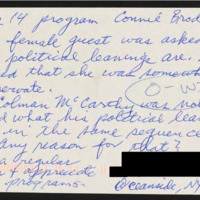 14 program Connie Brod
female guest was asked
political leanings are.
d that she was somewh
servate.
O-W
Colman McCarthy was no
d what his political lea
in the same sequence
any reason for that?
a regular
+ appreciate
programs.
Oceanside, N